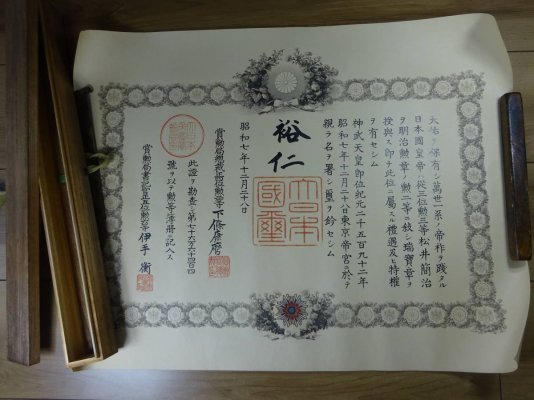 天佑ヲ保有シ萬世一系ノ帝祚ヲ踐タル
日本國皇帝ハ從三位勲三等松井簡治
ヲ明治勲章ノ勲二等ニ敍シ瑞寶章ヲ
授與ス卽チ此位ニ屬スル禮遇及ヒ特權
ヲ有セシム
神武天皇卽位紀元二千五百九十二年
昭和七年十二月二十八日東京帝宮ニ於テ
親ラ名ヲ署シ璽ヲ鈐セシム
裕仁
大日本
國璽
昭和七年十二月二十八日
賞勲局總裁正四位勲二等下條康麿
此證ヲ勘査シ第七十六万六千四百四
號ヲ以テ勲等簿册ニ記入ス
賞勲局書記官正五位勲六等伊手衛